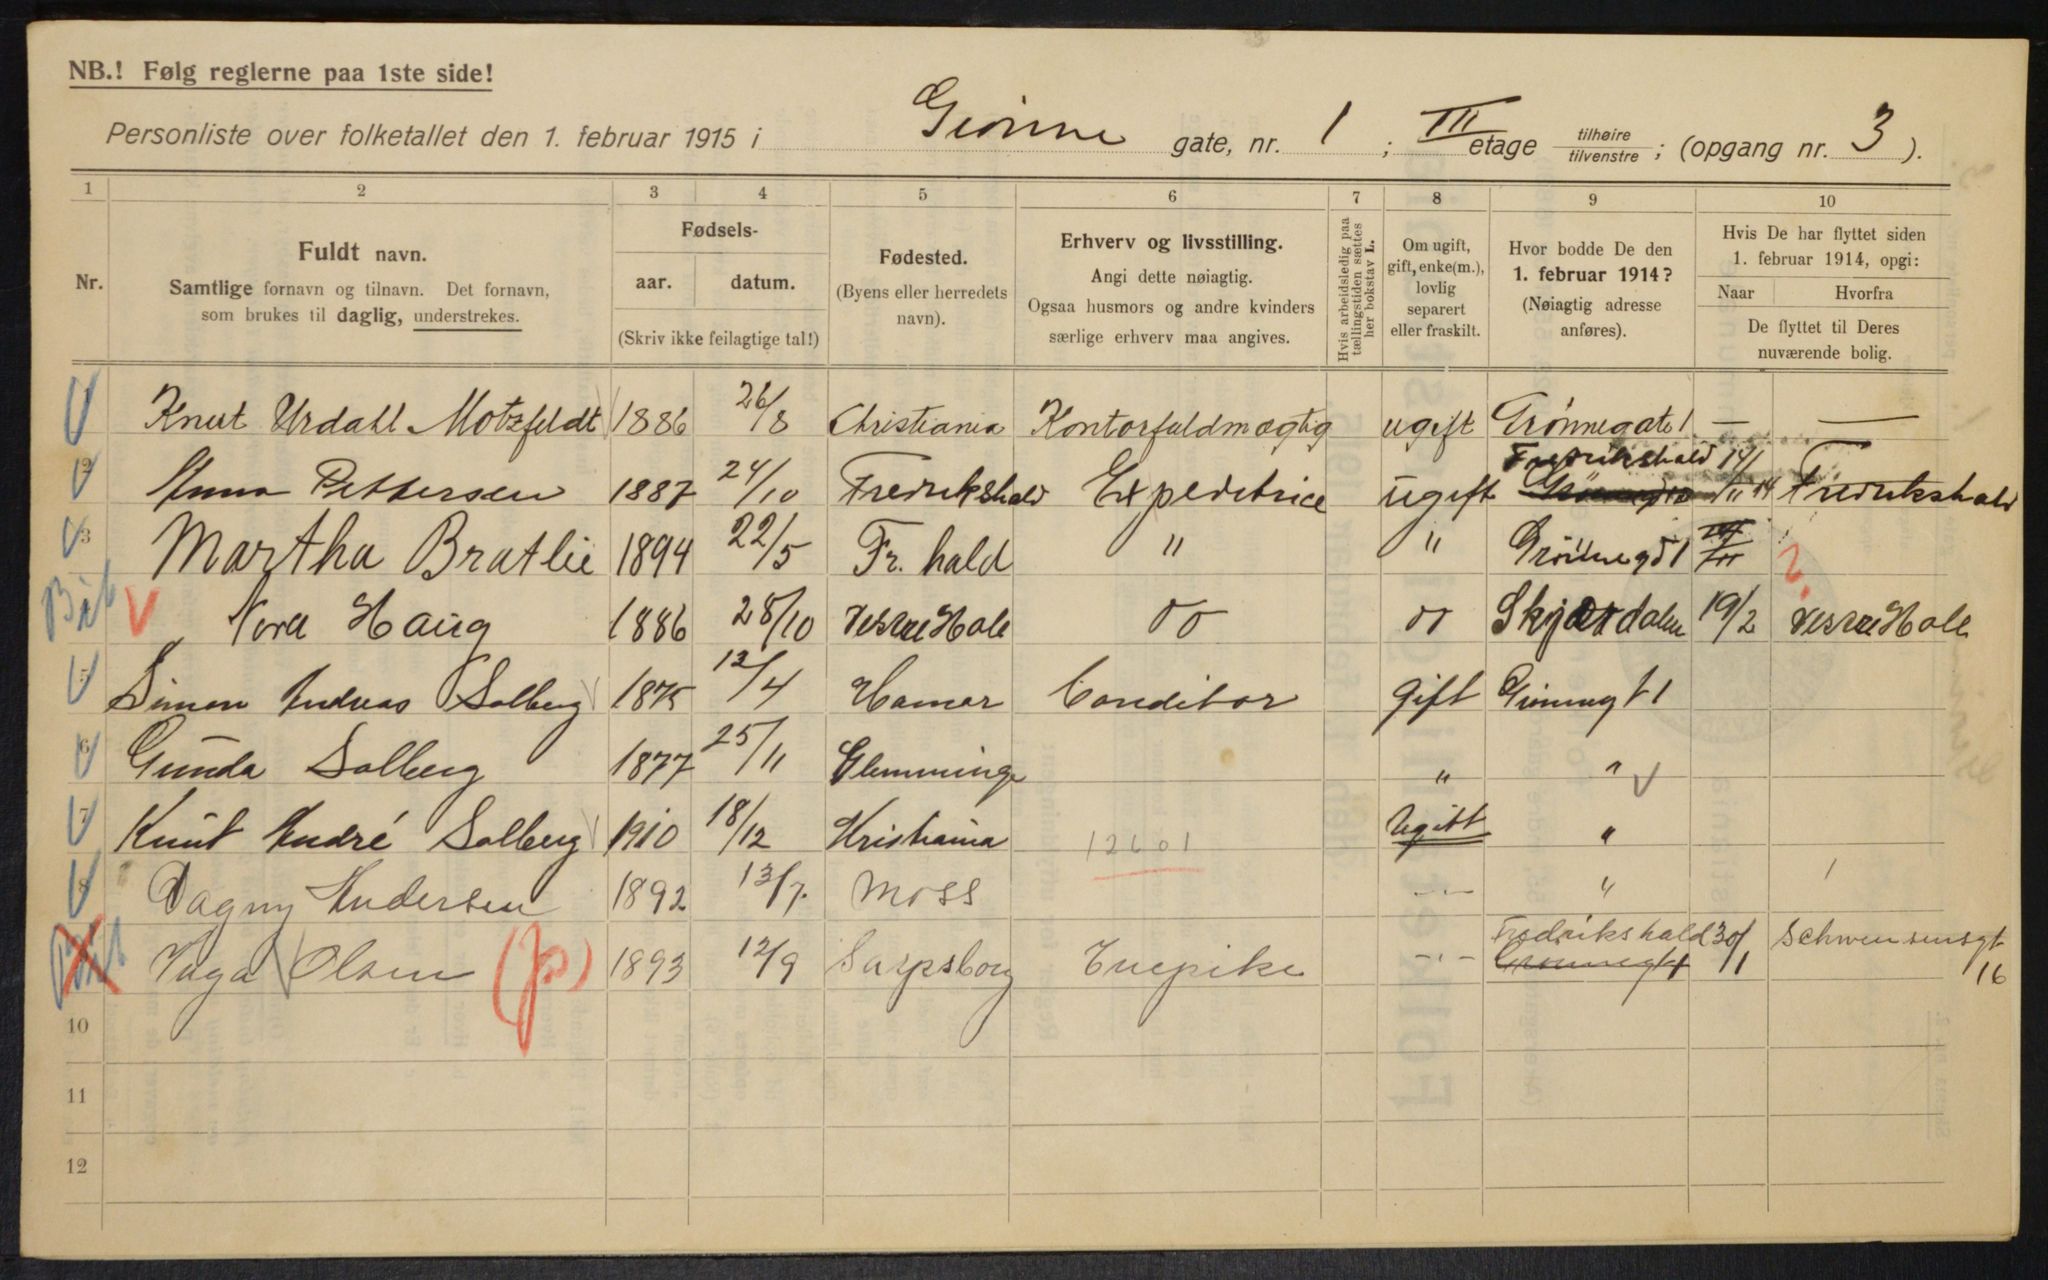 NB.! Følg reglerne paa 1ste side!
Personliste over folketallet den 1. februar 1915 i Grønne gate, nr. 1 ; III etage tilhøire / tilvenstre ; (opgang nr. 3 ).
1 2 3 4 5 6 7 8 9 10
Nr.
Fuldt navn.
Samtlige fornavn og tilnavn. Det fornavn,
som brukes til daglig, understrekes.
Fødsels-
aar. datum.
(Skriv ikke feilagtige tal!)
Fødested.
(Byens eller herredets
navn).
Erhverv og livsstilling.
Angi dette nøiagtig.
Ogsaa husmors og andre kvinders
særlige erhverv maa angives.
Hvis arbeidsledig paa
tællingstiden sættes
her bokstav L.
Om ugift,
gift, enke(m.),
lovlig
separert
eller fraskilt.
Hvor bodde De den
1. februar 1914?
(Nøiagtig adresse
anføres).
Hvis De har flyttet siden
1. februar 1914, opgi:
Naar Hvorfra
De flyttet til Deres
nuværende bolig.
1 Knut Urdahl Motzfeldt 1886 26/8 Christiania Kontorfuldmægtig ugift Grønnegate 1 — —
Fredrikshald 14/1
2 Anna Pettersen 1887 24/10 Fredrikshald Expeditrice ugift Fredrikshald
3 Martha Bratlie 1894 22/5 Fr. hald " " Grønnegd 1
V Nora Haug 1886 28/10 Vestre Hole " " Skjærdalen 19/2 Vestre Hole
5 Simon Andreas Solberg 1875 12/4 Hamar Conditor gift Grønnegt 1
6 Gunda Solberg 1877 25/11 Glemminge " "
7 Knut André Solberg 1910 18/12 Kristiania 12601 Ugift "
8 Dagny Andersen 1892 13/7. Moss -"- "
Fredrikshald 30/1 Schwensensgt
Inga Olsen (Js) 1893 12/9 Sarpsborg -"- Grønnegt 1 16
10
11
12